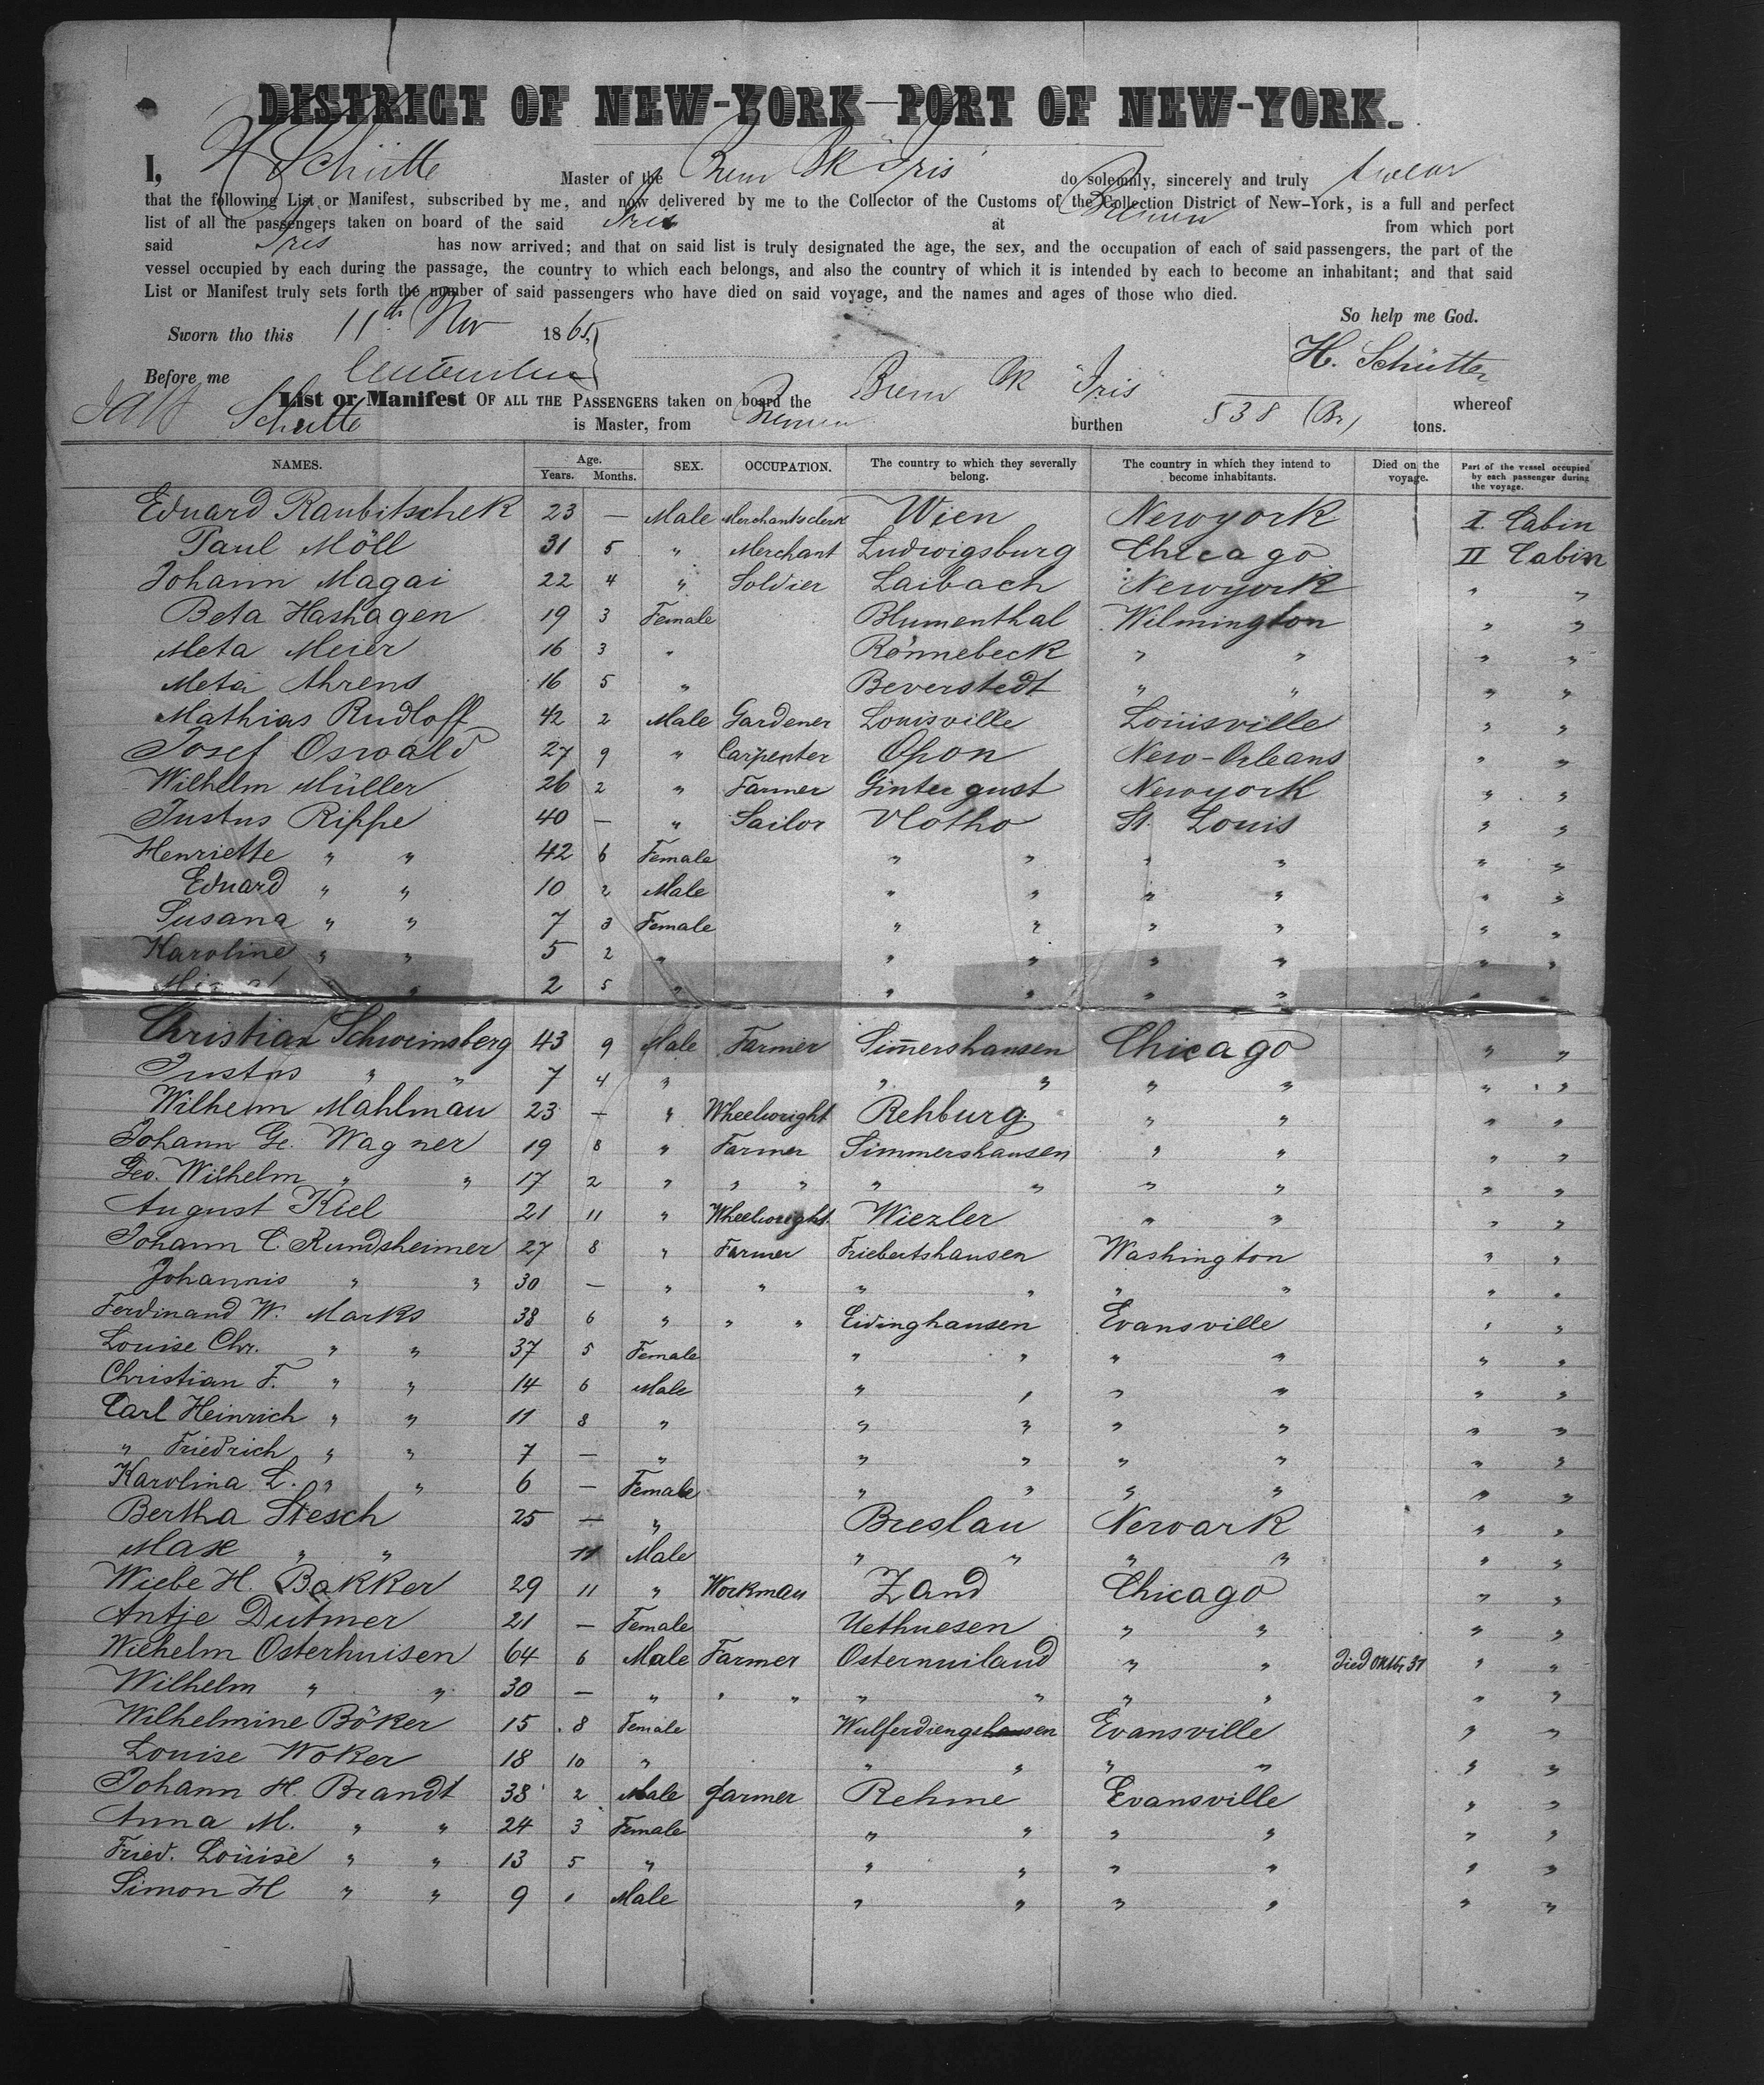 DISTRICT OF NEW-YORK—PORT OF NEW-YORK.
I, H Schütte Master of the Brem Bk Iris do solemnly, sincerely and truly swear
that the following List or Manifest, subscribed by me, and now delivered by me to the Collector of the Customs of the Collection District of New-York, is a full and perfect
list of all the passengers taken on board of the said Iris at Bremen from which port
said Iris has now arrived; and that on said list is truly designated the age, the sex, and the occupation of each of said passengers, the part of the
vessel occupied by each during the passage, the country to which each belongs, and also the country of which it is intended by each to become an inhabitant; and that said
List or Manifest truly sets forth the number of said passengers who have died on said voyage, and the names and ages of those who died.
So help me God.
Sworn tho this 11th Nov 1865,
H. Schütte
Before me
List or Manifest OF ALL THE PASSENGERS taken on board the Brem Bk "Iris" whereof
Schütte is Master, from Bremen burthen 538 (Br) tons.
NAMES. Age. Years. Months. SEX. OCCUPATION. The country to which they severally belong. The country in which they intend to become inhabitants. Died on the voyage. Part of the vessel occupied by each passenger during the voyage.
Eduard Raubitschek 23 — Male Merchantsclerk Wien Newyork I. Cabin
Paul Möll 31 5 " Merchant Ludwigsburg Chicago II Cabin
Johann Magai 22 4 " Soldier Laibach Newyork " "
Beta Hashagen 19 3 Female Blumenthal Wilmington " "
Meta Meier 16 3 " Rönnebeck " " " "
Meta Ahrens 16 5 " Beverstedt " " " "
Mathias Rudloff 42 2 Male Gardener Louisville Louisville " "
Josef Oswald 27 9 " Carpenter Opon New-Orleans " "
Wilhelm Müller 26 2 " Farmer Gintergust Newyork " "
Justus Rippe 40 — " Sailor Vlotho St. Louis " "
Henriette " " 42 6 Female " " " " " "
Eduard " " 10 2 Male " " " " " "
Susana " " 7 3 Female " " " " " "
Karoline " " 5 2 " " " " " " "
" 2 5 " " " " " " "
Christian Schweinsberg 43 9 Male Farmer Simershausen Chicago " "
Justus " " 7 4 " " " " " " "
Wilhelm Mahlmau 23 — " Wheelwright Rehburg " " " "
Johann Ge. Wagner 19 8 " Farmer Simmershausen " " " "
Geo. Wilhelm " " 17 2 " " " " " " " " "
August Kiel 21 11 " Wheelwright Wiezler " " " "
Johann C. Rundsheimer 27 8 " Farmer Friebertshausen Washington " "
Johannis " " 30 — " " " " " " " "
Ferdinand W. Marks 38 6 " " " Eidinghausen Evansville " "
Louise Chr. " " 37 5 Female " " " " " "
Christian F. " " 14 6 Male " " " " " "
Carl Heinrich " " 11 8 " " " " " " "
" Friedrich " " 7 — " " " " " " "
Karolina L. " " 6 — Female " " " " " "
Bertha Stesch 25 — " Breslau Newark " "
Max " " 11 Male " " " " " "
Wiebe H. Bakker 29 11 " Workman Zand Chicago " "
Antje Dutmer 21 — Female Uethuesen " " " "
Wilhelm Osterhuisen 64 6 Male Farmer Osternuiland " " Died Oktbr 31 " "
Wilhelm " " 30 — " " " " " " " " "
Wilhelmine Böker 15 8 Female Wulferdiengshausen Evansville " "
Louise Woker 18 10 " " " " " " "
Johann H. Brandt 38 2 Male farmer Rehme Evansville " "
Anna M. " " 24 3 Female " " " " " "
Fried. Louise " " 13 5 " " " " " " "
Simon H " " 9 " Male " " " " " "